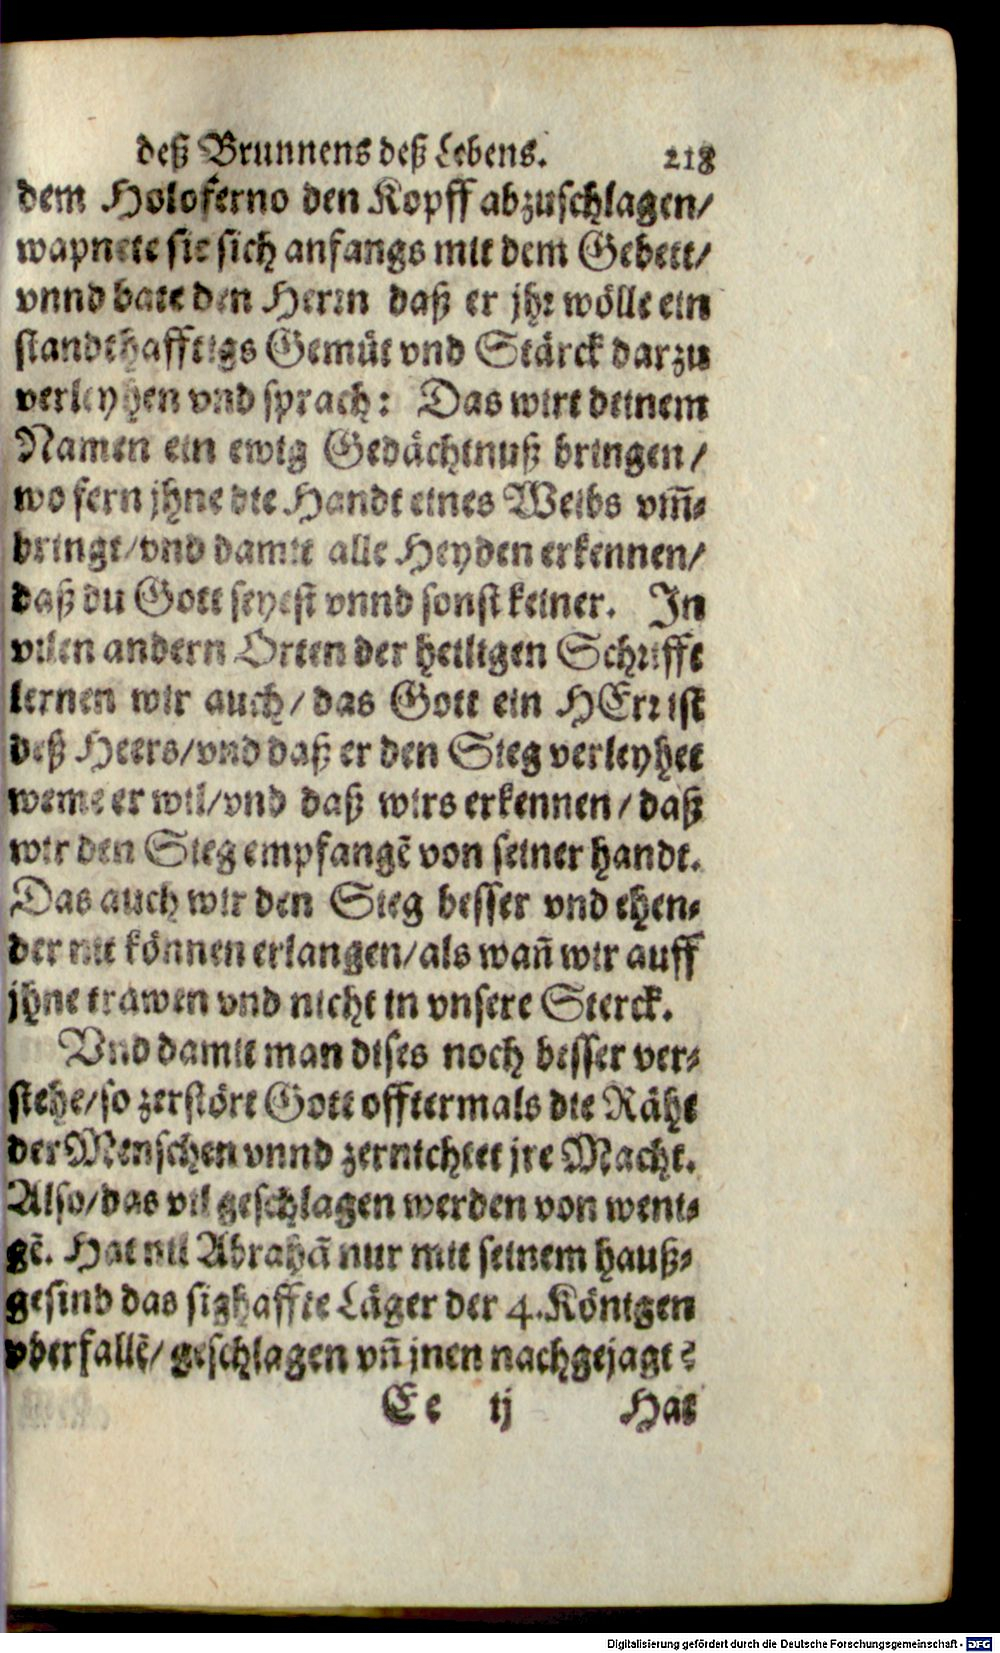 deß Brunnens deß Lebens. 218
dem Holoferno den Kopff abzuschlagen/
wapnete sie sich anfangs mit dem Gebett/
vnnd bate den Herrn daß er jhr wölle ein
standthafftigs Gemüt vnd Stärck darzu
verleyhen vnd sprach: Das wirt deinem
Namen ein ewig Gedächtnuß bringen/
wo fern jhne die Handt eines Weibs vm̃-
bringt/vnd damit alle Heyden erkennen/
daß du Gott seyest vnnd sonst keiner. In
vilen andern Orten der heiligen Schrifft
lernen wir auch/das Gott ein HErr ist
deß Heers/vnd daß er den Sieg verleyhet
weme er wil/vnd daß wirs erkennen/daß
wir den Sieg empfangẽ von seiner handt.
Das auch wir den Sieg besser vnd ehen-
der nit können erlangen/als wañ wir auff
jhne trawen vnd nicht in vnsere Sterck.
Vnd damit man dises noch besser ver-
stehe/so zerstört Gott offtermals die Räht
der Menschen vnnd zernichtet jre Macht.
Also/das vil geschlagen werden von weni-
gẽ. Hat nit Abrahã nur mit seinem hauß-
gesind das sighaffte Läger der 4.Königen
vberfallẽ/geschlagen vñ jnen nachgejagt?
Ee ij Hat
Digitalisierung gefördert durch die Deutsche Forschungsgemeinschaft - DFG